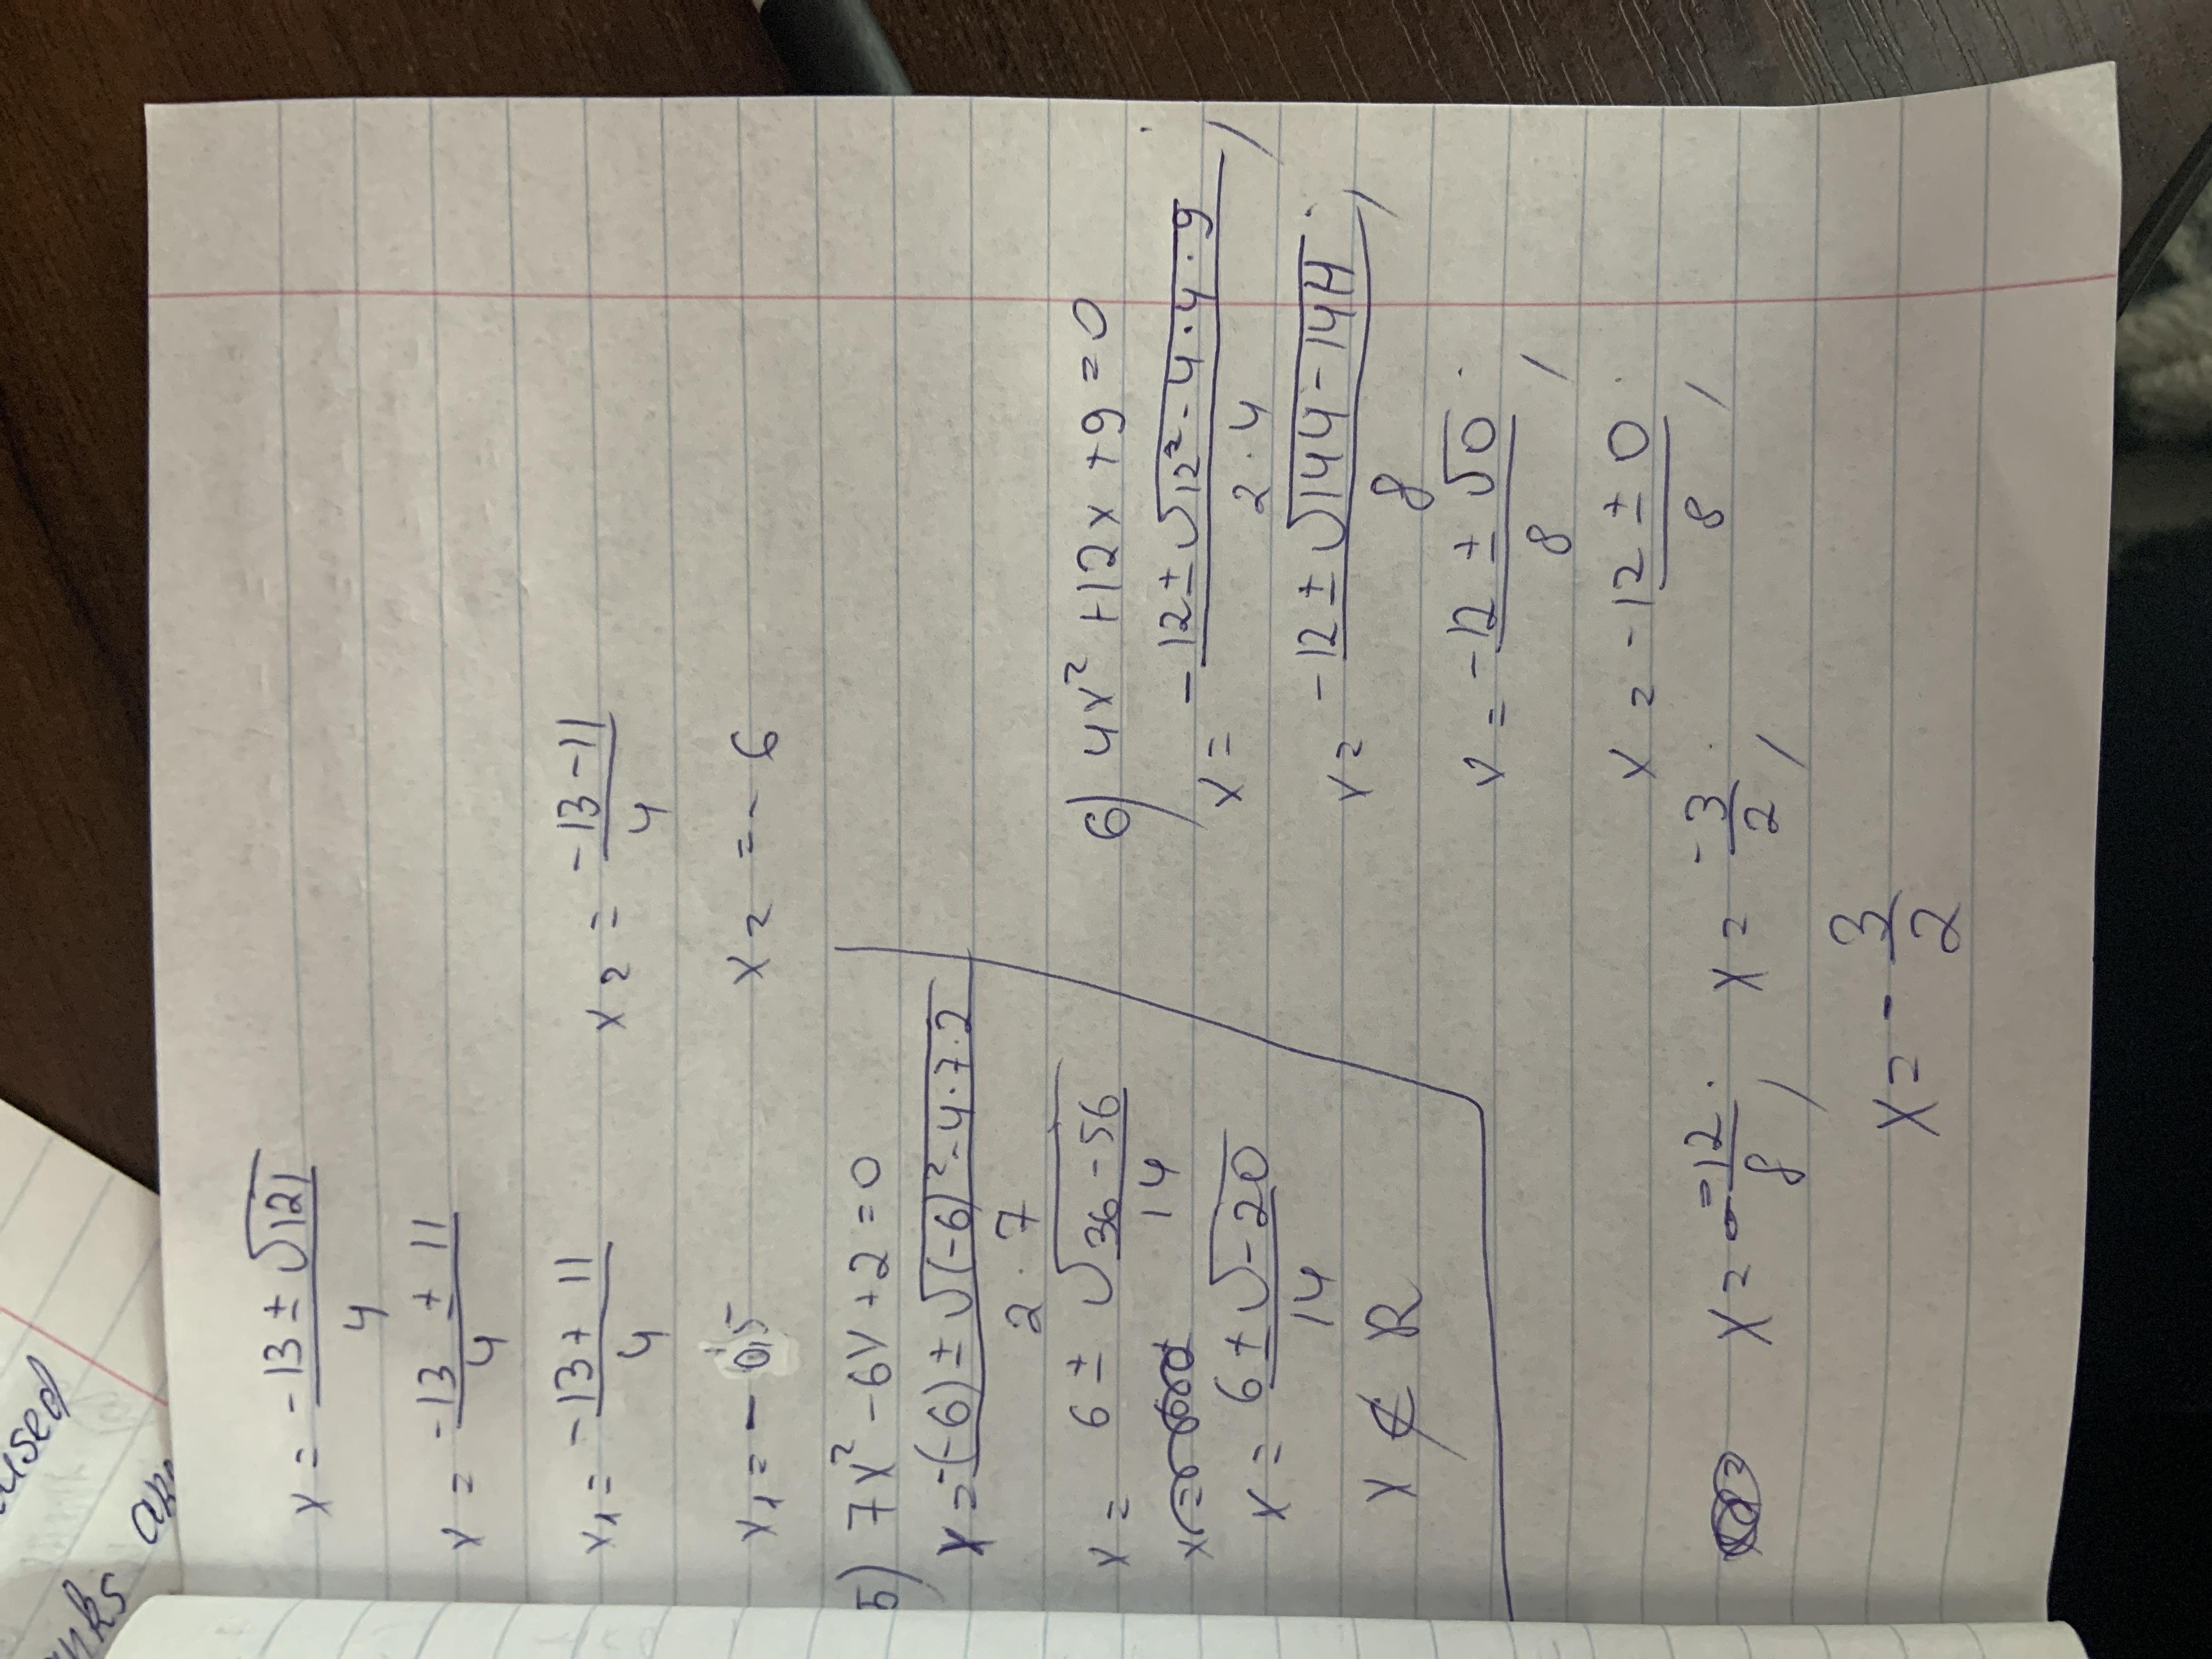 x = -13 ± √121 / 4
x = -13 ± 11 / 4
x1 = -13 + 11 / 4
x2 = -13 - 11 / 4
x1 = - 0,5
x2 = - 6
5) 7x² - 6x + 2 = 0
x = -(-6) ± √(-6)² - 4·7·2 / 2·7
x = 6 ± √36 - 56 / 14
x = 6 ± √-20 / 14
x ∉ R
6) 4x² + 12x + 9 = 0
x = -12 ± √12² - 4·4·9 / 2·4
x = -12 ± √144 - 144 / 8
x = -12 ± √0 / 8
x = -12 ± 0 / 8
x = -12 / 8 x = -3 / 2
x = - 3 / 2
used